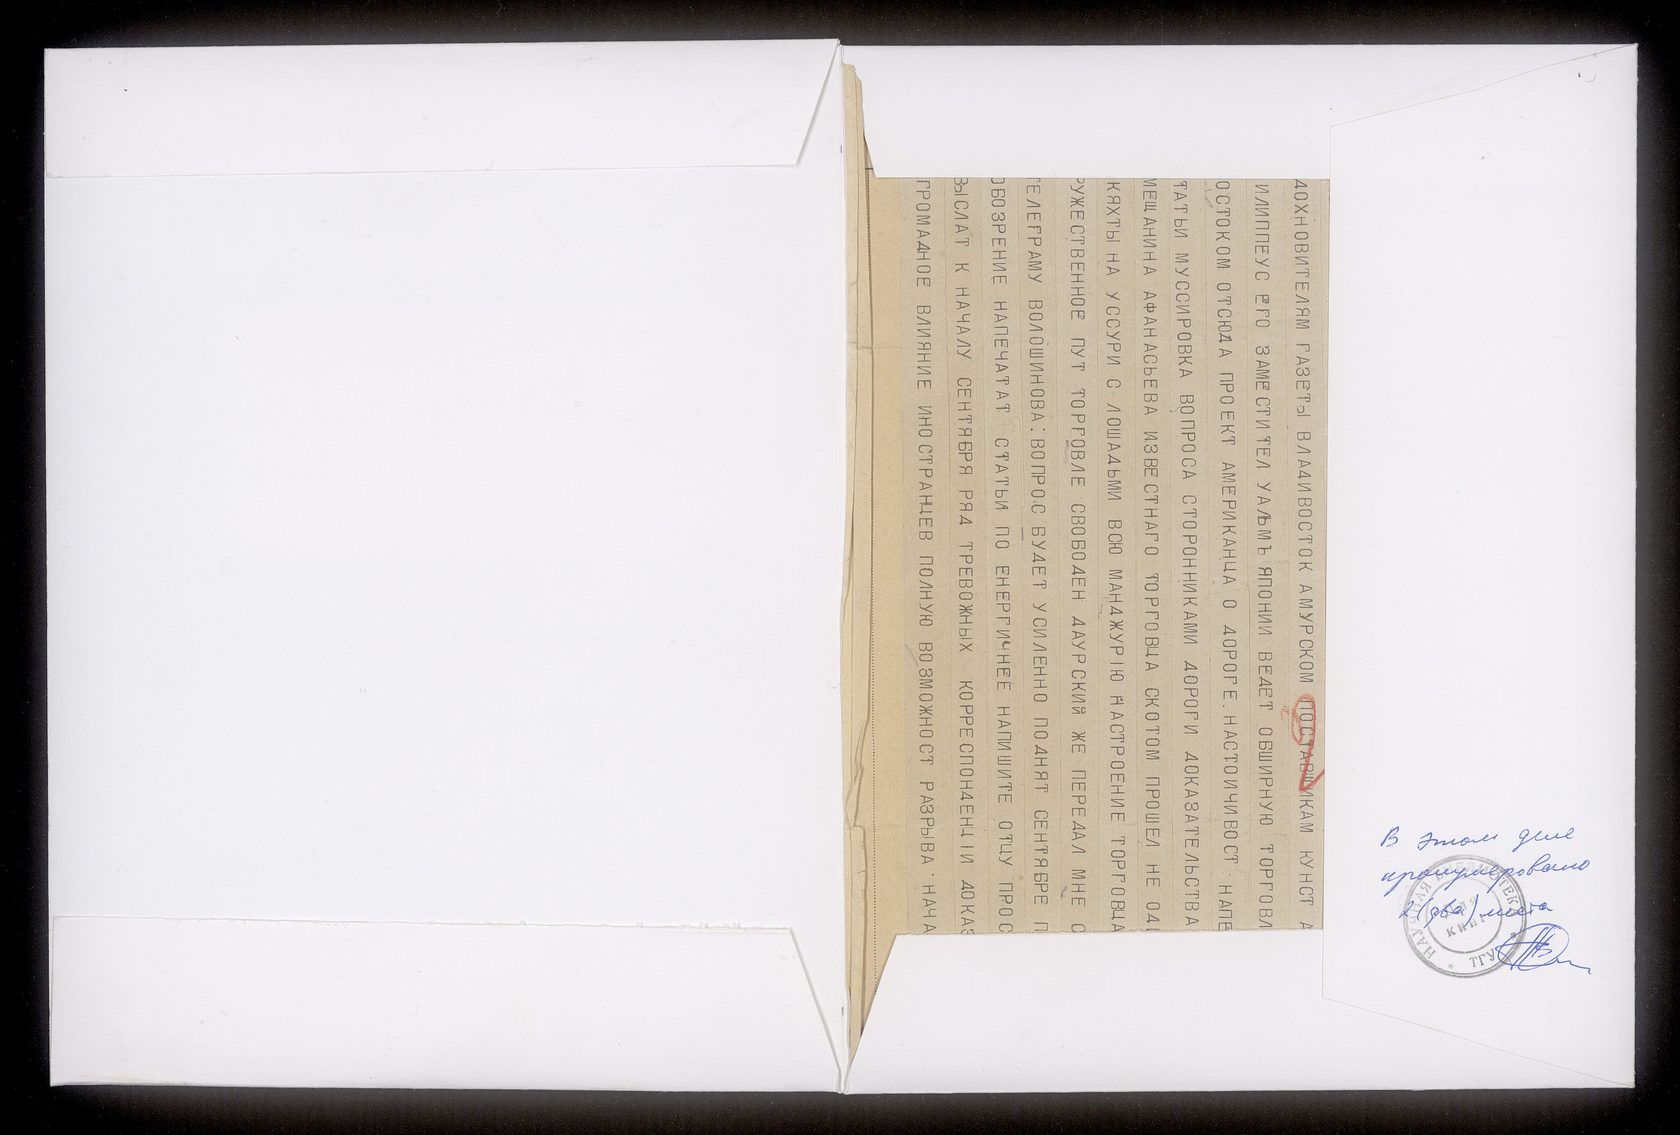 ДОХНОВИТЕЛЯМ ГАЗЕТЫ ВЛАДИВОСТОК АМУРСКОМ ПОСТАВЩИКАМ КУНСТ А
ИЛИППЕУС ЕГО ЗАМЕСТИТЕЛ УАЛЬМЪ ЯПОНИИ ВЕДЕТ ОБШИРНУЮ ТОРГОВЛ
ОСТОКОМ ОТСЮДА ПРОЕКТ АМЕРИКАНЦА О ДОРОГЕ. НАСТОИЧИВОСТ · НАПЕ
ТАТЬИ МУССИРОВКА ВОПРОСА СТОРОННИКАМИ ДОРОГИ ДОКАЗАТЕЛЬСТВА
МЕЩАНИНА АФАНАСЬЕВА ИЗВЕСТНАГО ТОРГОВЦА СКОТОМ ПРОШЕЛ НЕ ОД
КЯХТЫ НА УССУРИ С ЛОШАДЬМИ ВСЮ МАНДЖУРIЮ НАСТРОЕНИЕ ТОРГОВЦА
РУЖЕСТВЕННОЕ ПУТ ТОРГОВЛЕ СВОБОДЕН ДАУРСКИЙ ЖЕ ПЕРЕДАЛ МНЕ С
ТЕЛЕГРАМУ ВОЛОШИНОВА: ВОПРОС БУДЕТ УСИЛЕННО ПОДНЯТ СЕНТЯБРЕ П
ОБОЗРЕНИЕ НАПЕЧАТАТ СТАТЬИ ПО ЕНЕРГИЧНЕЕ НАПИШИТЕ ОТЦУ ПРОС
ВЫСЛАТ К НАЧАЛУ СЕНТЯБРЯ РЯД ТРЕВОЖНЫХ КОРРЕСПОНДЕНЦIИ ДОКАЗ
ГРОМАДНОЕ ВЛИЯНИЕ ИНОСТРАНЦЕВ ПОЛНУЮ ВОЗМОЖНОСТ РАЗРЫВА · НАЧА
В этом деле
пронумеровано
2 (два) листа
НАУЧНАЯ БИБЛИОТЕКА * ТГУ *
КНИГ